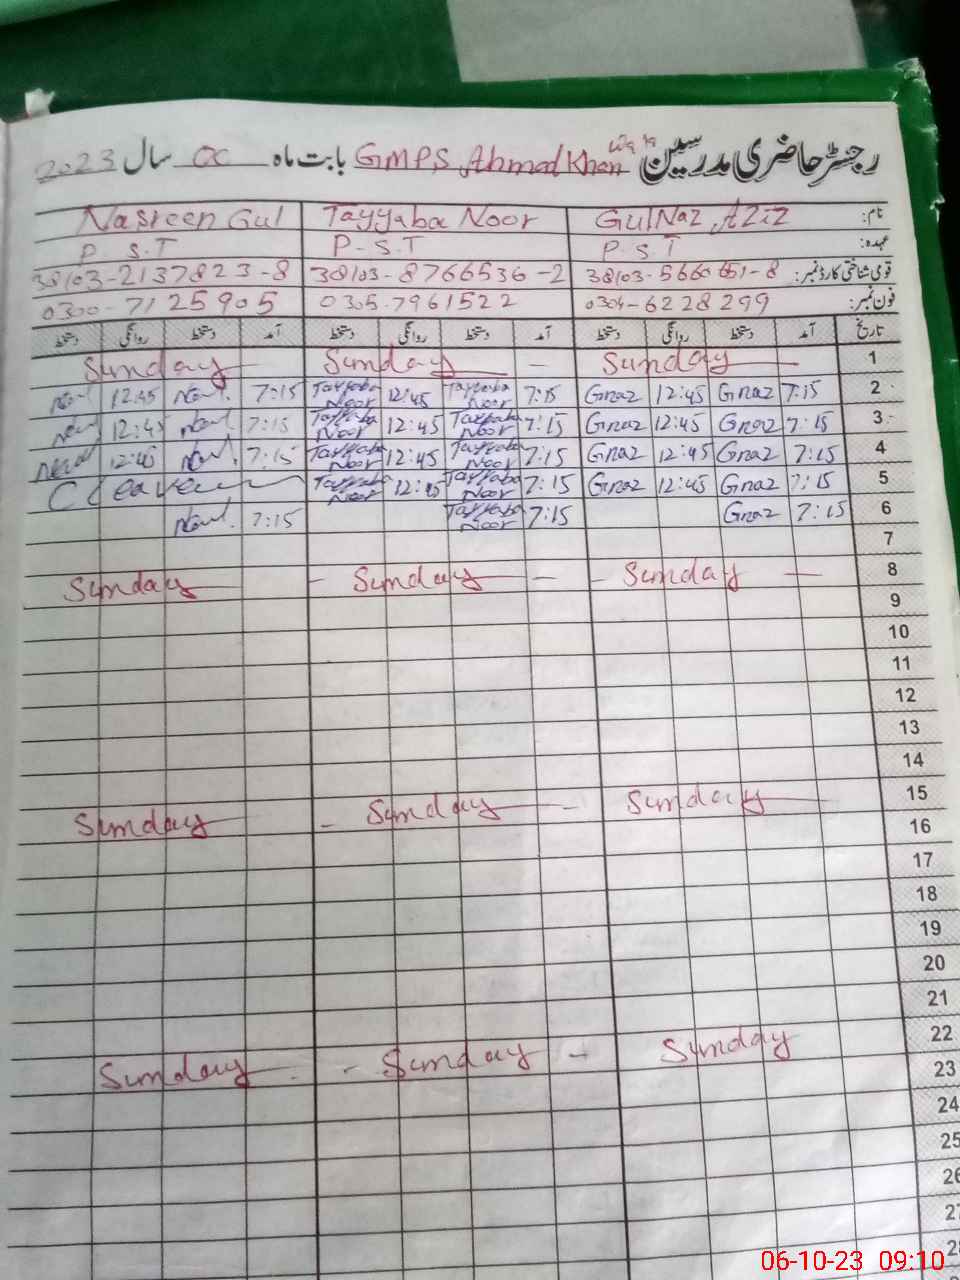 رجسٹر حاضری مدرسین GMPS Ahmad Khan بابت ماہ سال 2023
نام: GulNaz Aziz Tayyaba Noor Nasreen Gul
عہدہ: P.S.T P.S.T P.S.T
قومی شناختی کارڈ نمبر: 38103-5660651-8 38103-8766536-2 38103-2137823-8
فون نمبر: 0304-6228299 0305-7961522 0300-7125905
تاریخ آمد دستخط روانگی دستخط آمد دستخط روانگی دستخط آمد دستخط روانگی دستخط
1 Sunday Sunday Sunday
2 7:15 Gnaz 12:45 Gnaz 7:15 Tayyaba Noor 12:45 Tayyaba Noor 7:15 12:45
3 7:15 Gnaz 12:45 Gnaz 7:15 Tayyaba Noor 12:45 Tayyaba Noor 7:15 12:45
4 7:15 Gnaz 12:45 Gnaz 7:15 Tayyaba Noor 12:45 Tayyaba Noor 7:15 12:45
5 7:15 Gnaz 12:45 Gnaz 7:15 Tayyaba Noor 12:45 Tayyaba Noor C Leave
6 7:15 Gnaz 7:15 Tayyaba Noor 7:15
7
8 Sunday Sunday Sunday
9
10
11
12
13
14
15 Sunday Sunday Sunday
16
17
18
19
20
21
22 Sunday Sunday Sunday
23
24
25
26
27
28
06-10-23 09:10